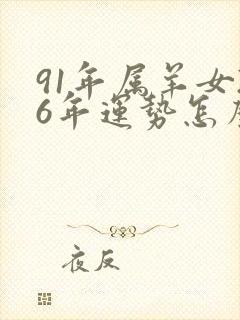 91年属羊女
6年運勢怎
夜反